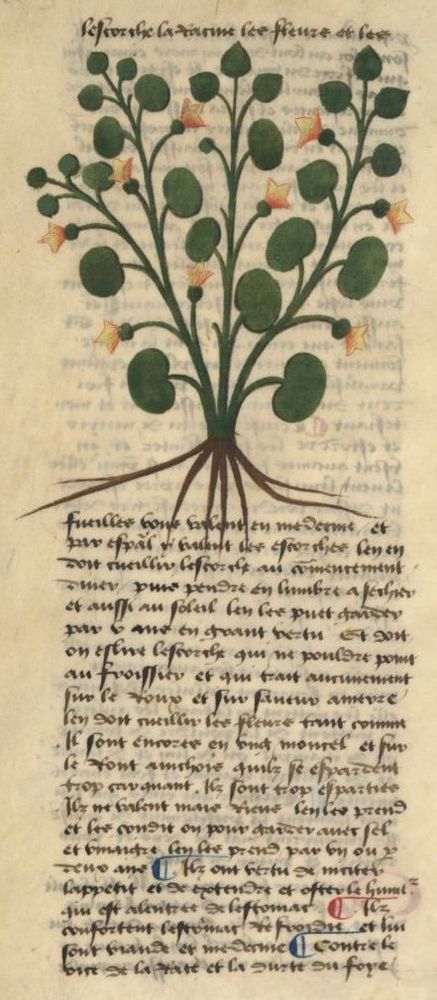 lescorche la racine les fleurs et les
fueilles tous valent en medecine et
par espãl y valent les escorches len en
doit cueillir lescorche au cõmencement
diuer puis pendre en lumbre a sechier
et aussi au soleil len les puet garder
par v ans en grant vertu Et doit
on eslire lescorche qui ne pouldre point
au froissier et qui trait aucunement
sur le roux et sur saueur amere
len doit cueillir les fleurs tant comme
Il sont encores en vng moncel et sur
le ront aincois quilz se espardent
trop car quant Ilz sont trop esparties
Ilz ne valent mais riens len les prend
et les condit on pour garder auec sel
et vinaigre len les prend par vn ou p
deux ans ¶ Ilz ont vertu de inciter
lappetit et de extendre et oster le hume
qui est alentree de lestomac ¶ Ilz
confortent lestomac refroidie et lui
sont viande et medecine ¶ Contre le
vice de la rate et la durte du foye